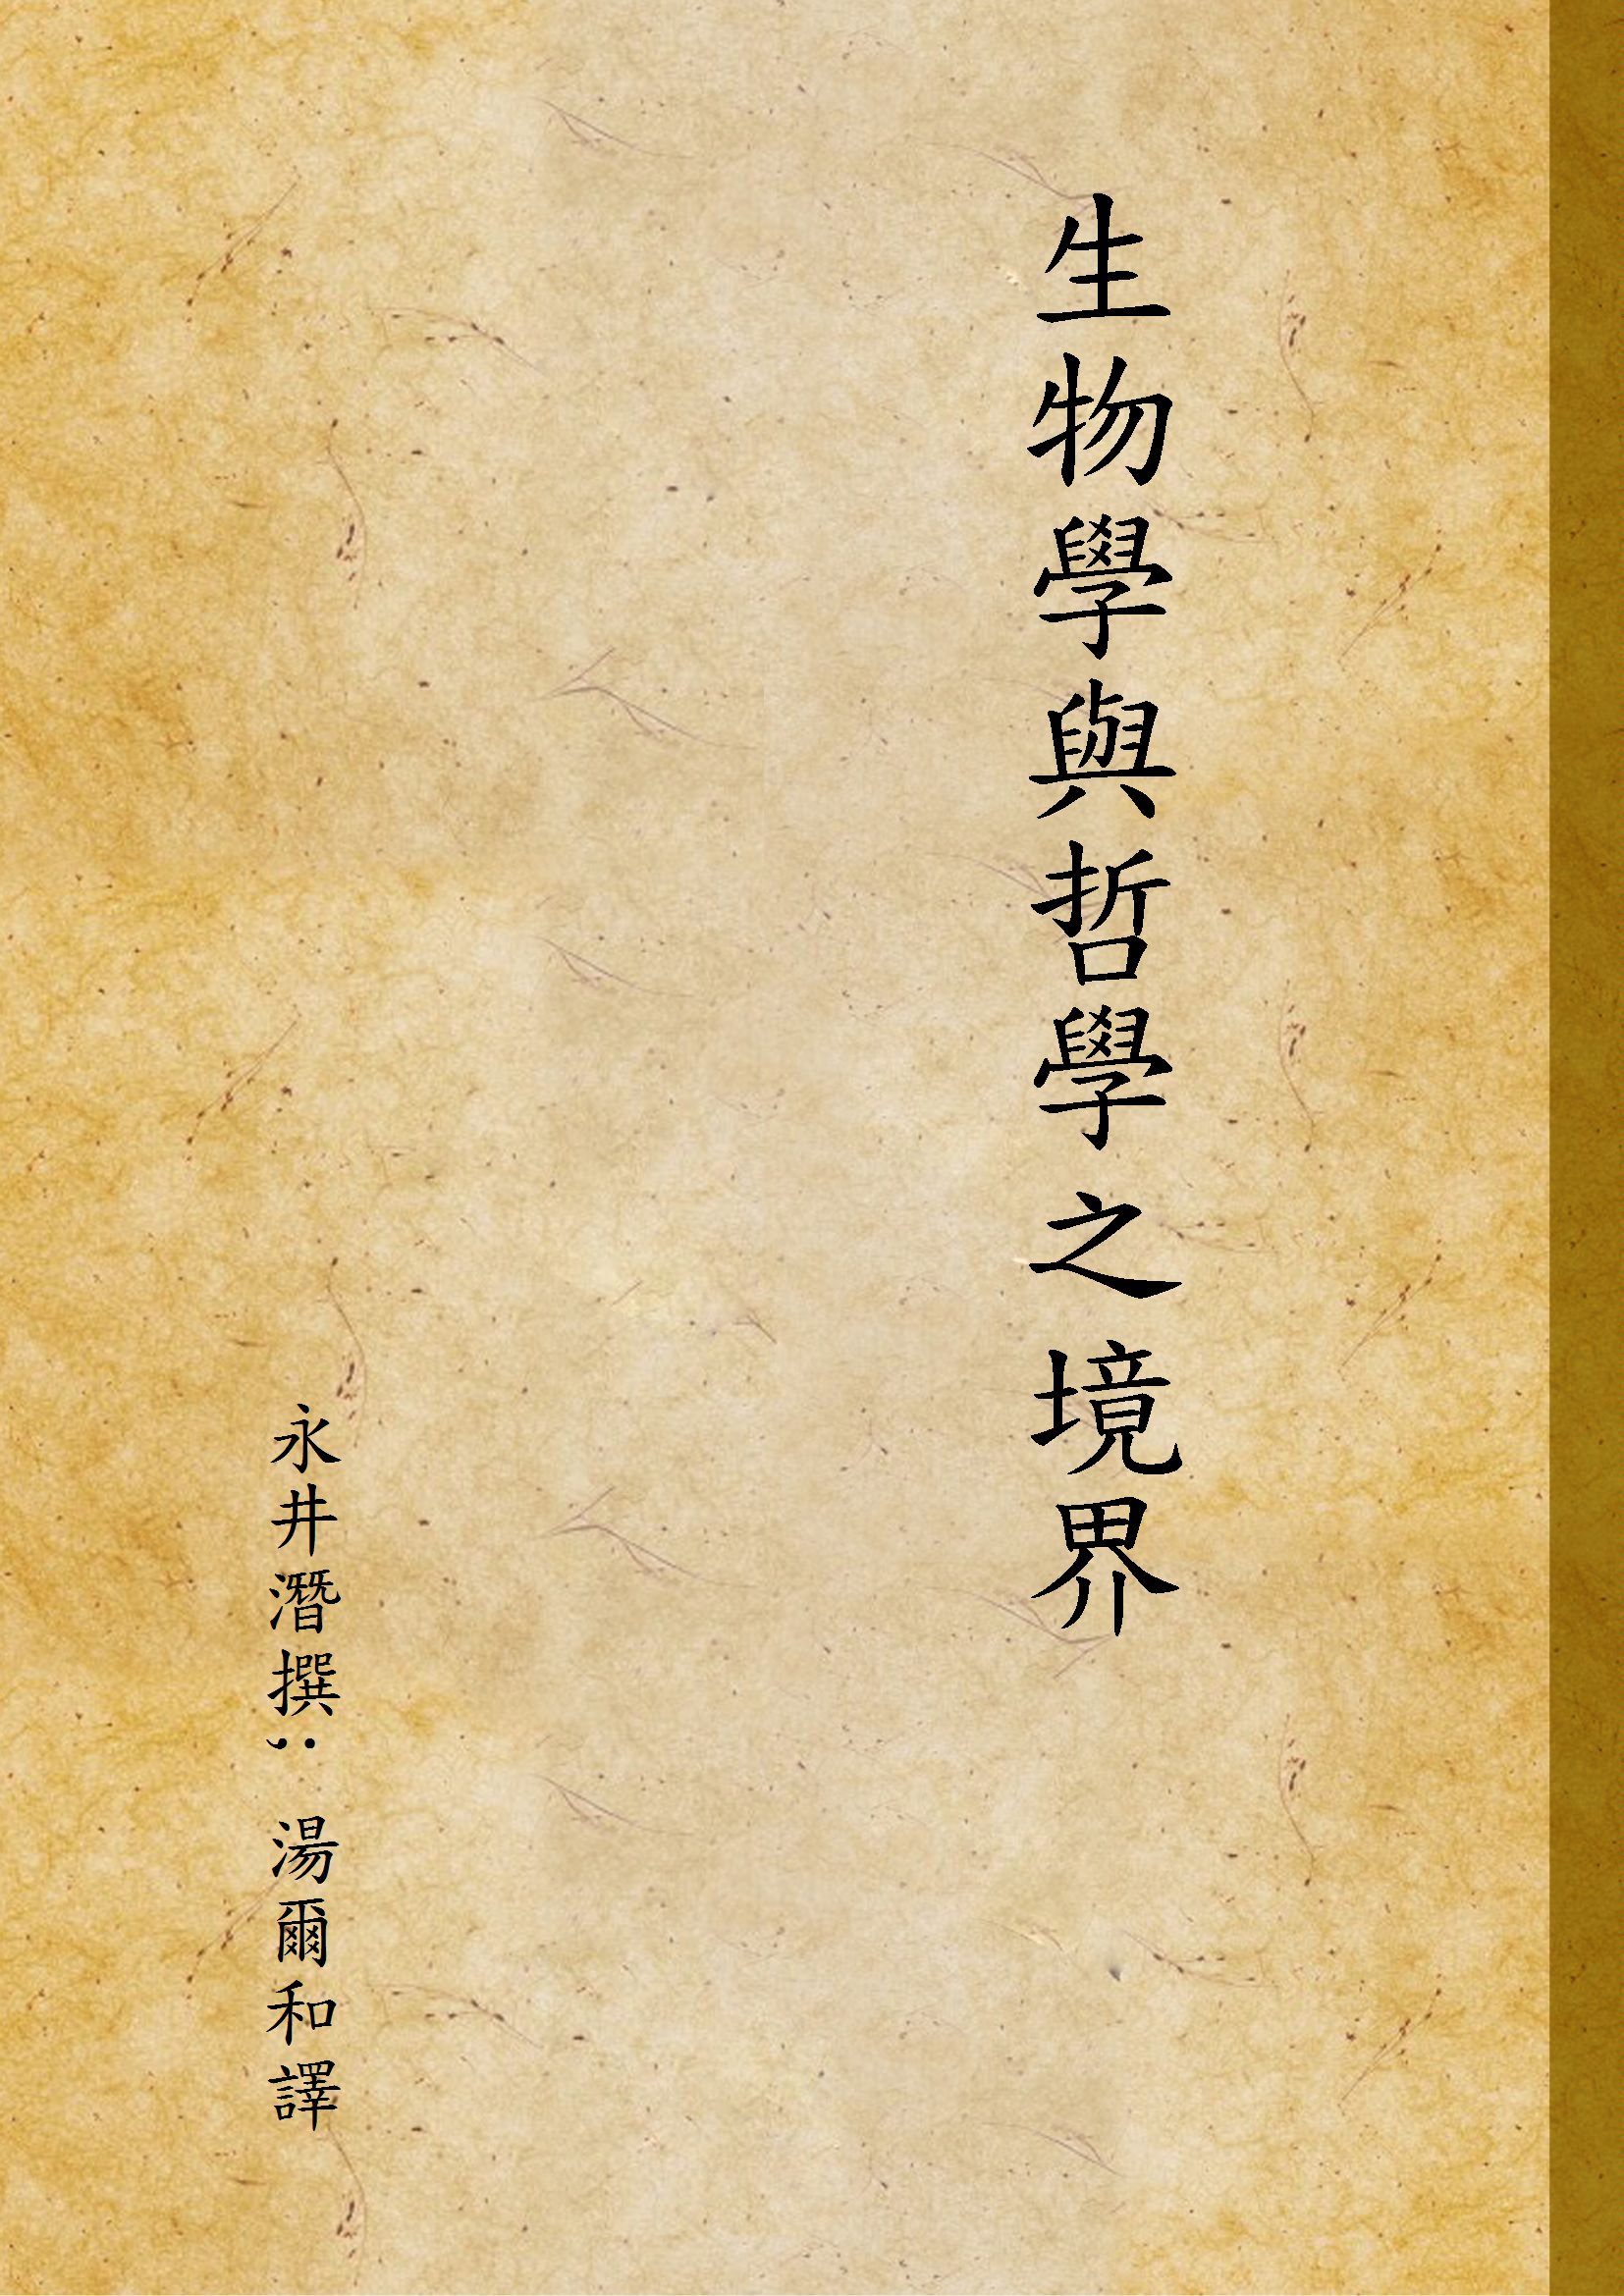 生物學與哲學之境界
永井潛撰; 湯爾和譯